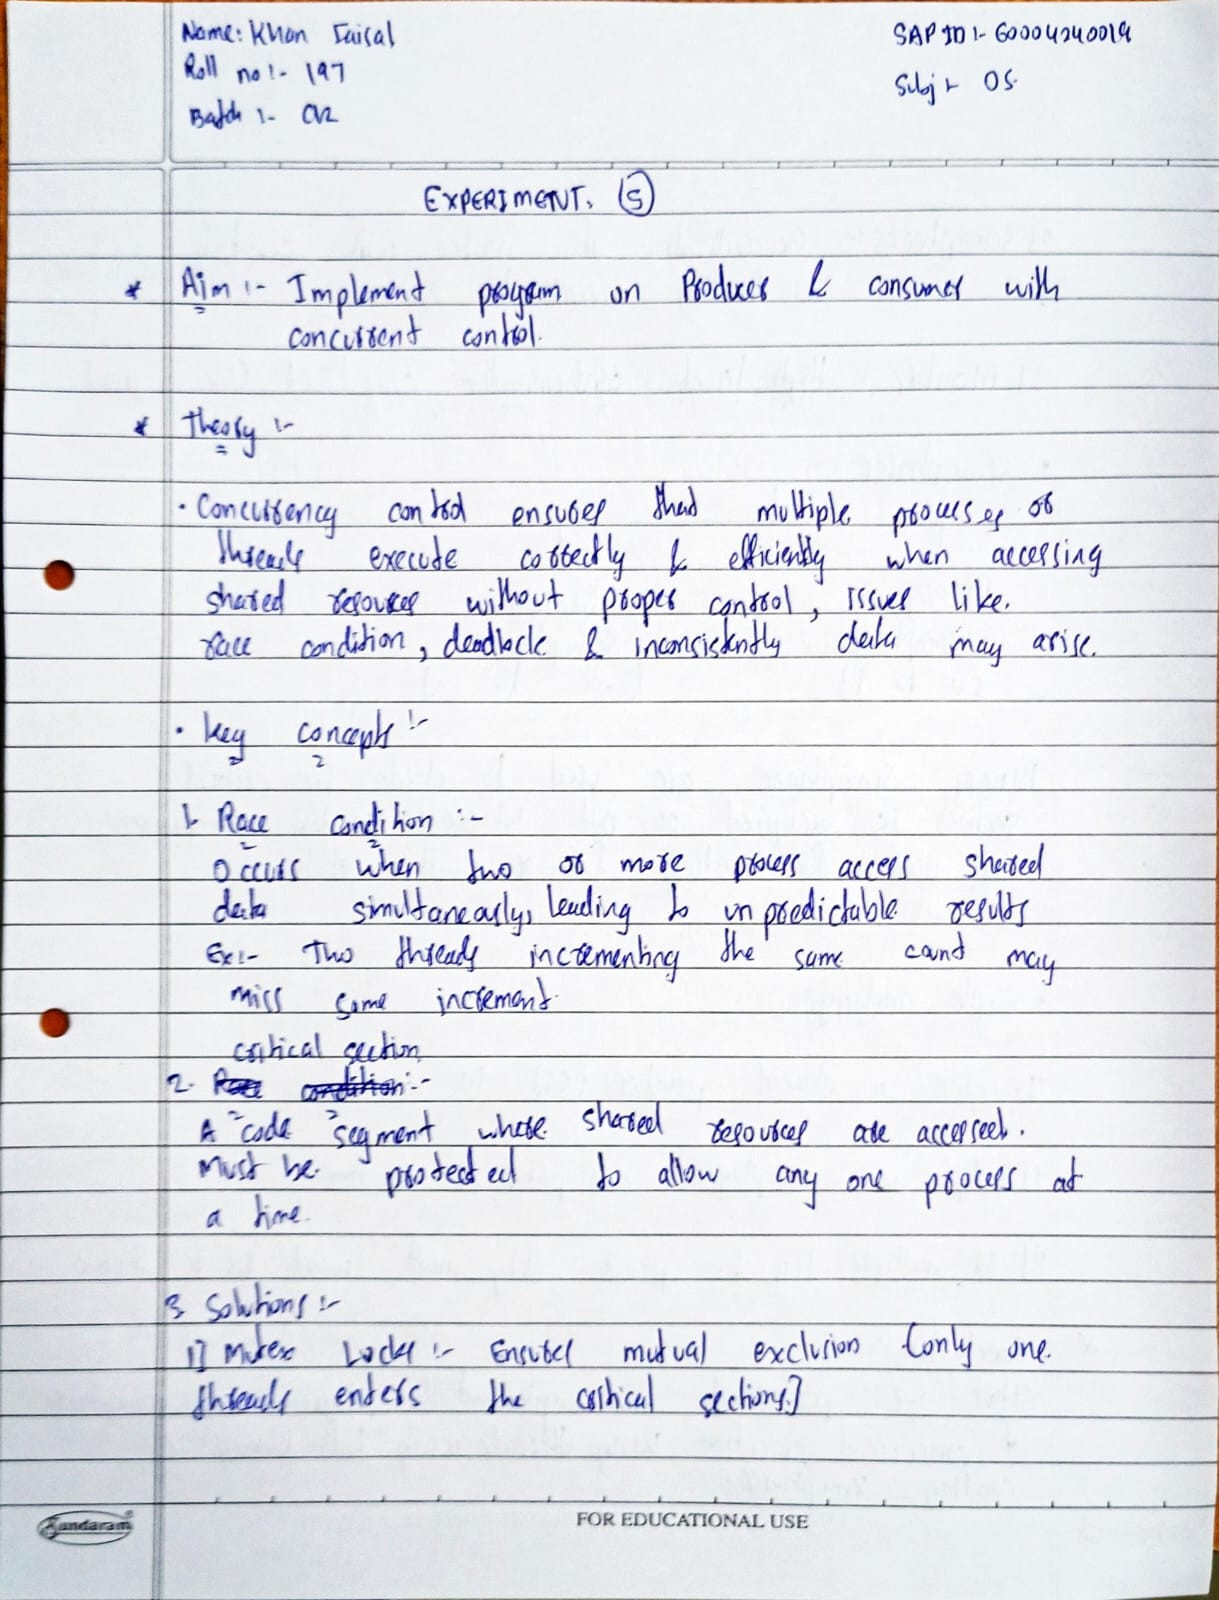 Name: Khan Faisal
SAP ID :- 60004240019
Roll no :- 197
Subj :- OS.
Batch :-
EXPERIMENT. 5
* Aim :- Implement program on Producer & consumer with
concurrent control.
* Theory :-
• Concurrency control ensures that multiple processes or
threads execute correctly & efficiently when accessing
shared resources without proper control, issues like.
race condition, deadlock & inconsistently data may arise.
• Key concepts :-
1. Race condition :-
Occurs when two or more process access shared
data simultaneously, leading to unpredictable results
Ex :- Two threads incrementing the same count may
miss some increment.
critical section
2. Race condition :-
A code segment where shared resources are accessed.
Must be protected to allow any one process at
a time.
3. Solutions :-
1] Mutex Locks :- Ensures mutual exclusion (only one.
threads enters the critical sections.]
Sundaram
FOR EDUCATIONAL USE